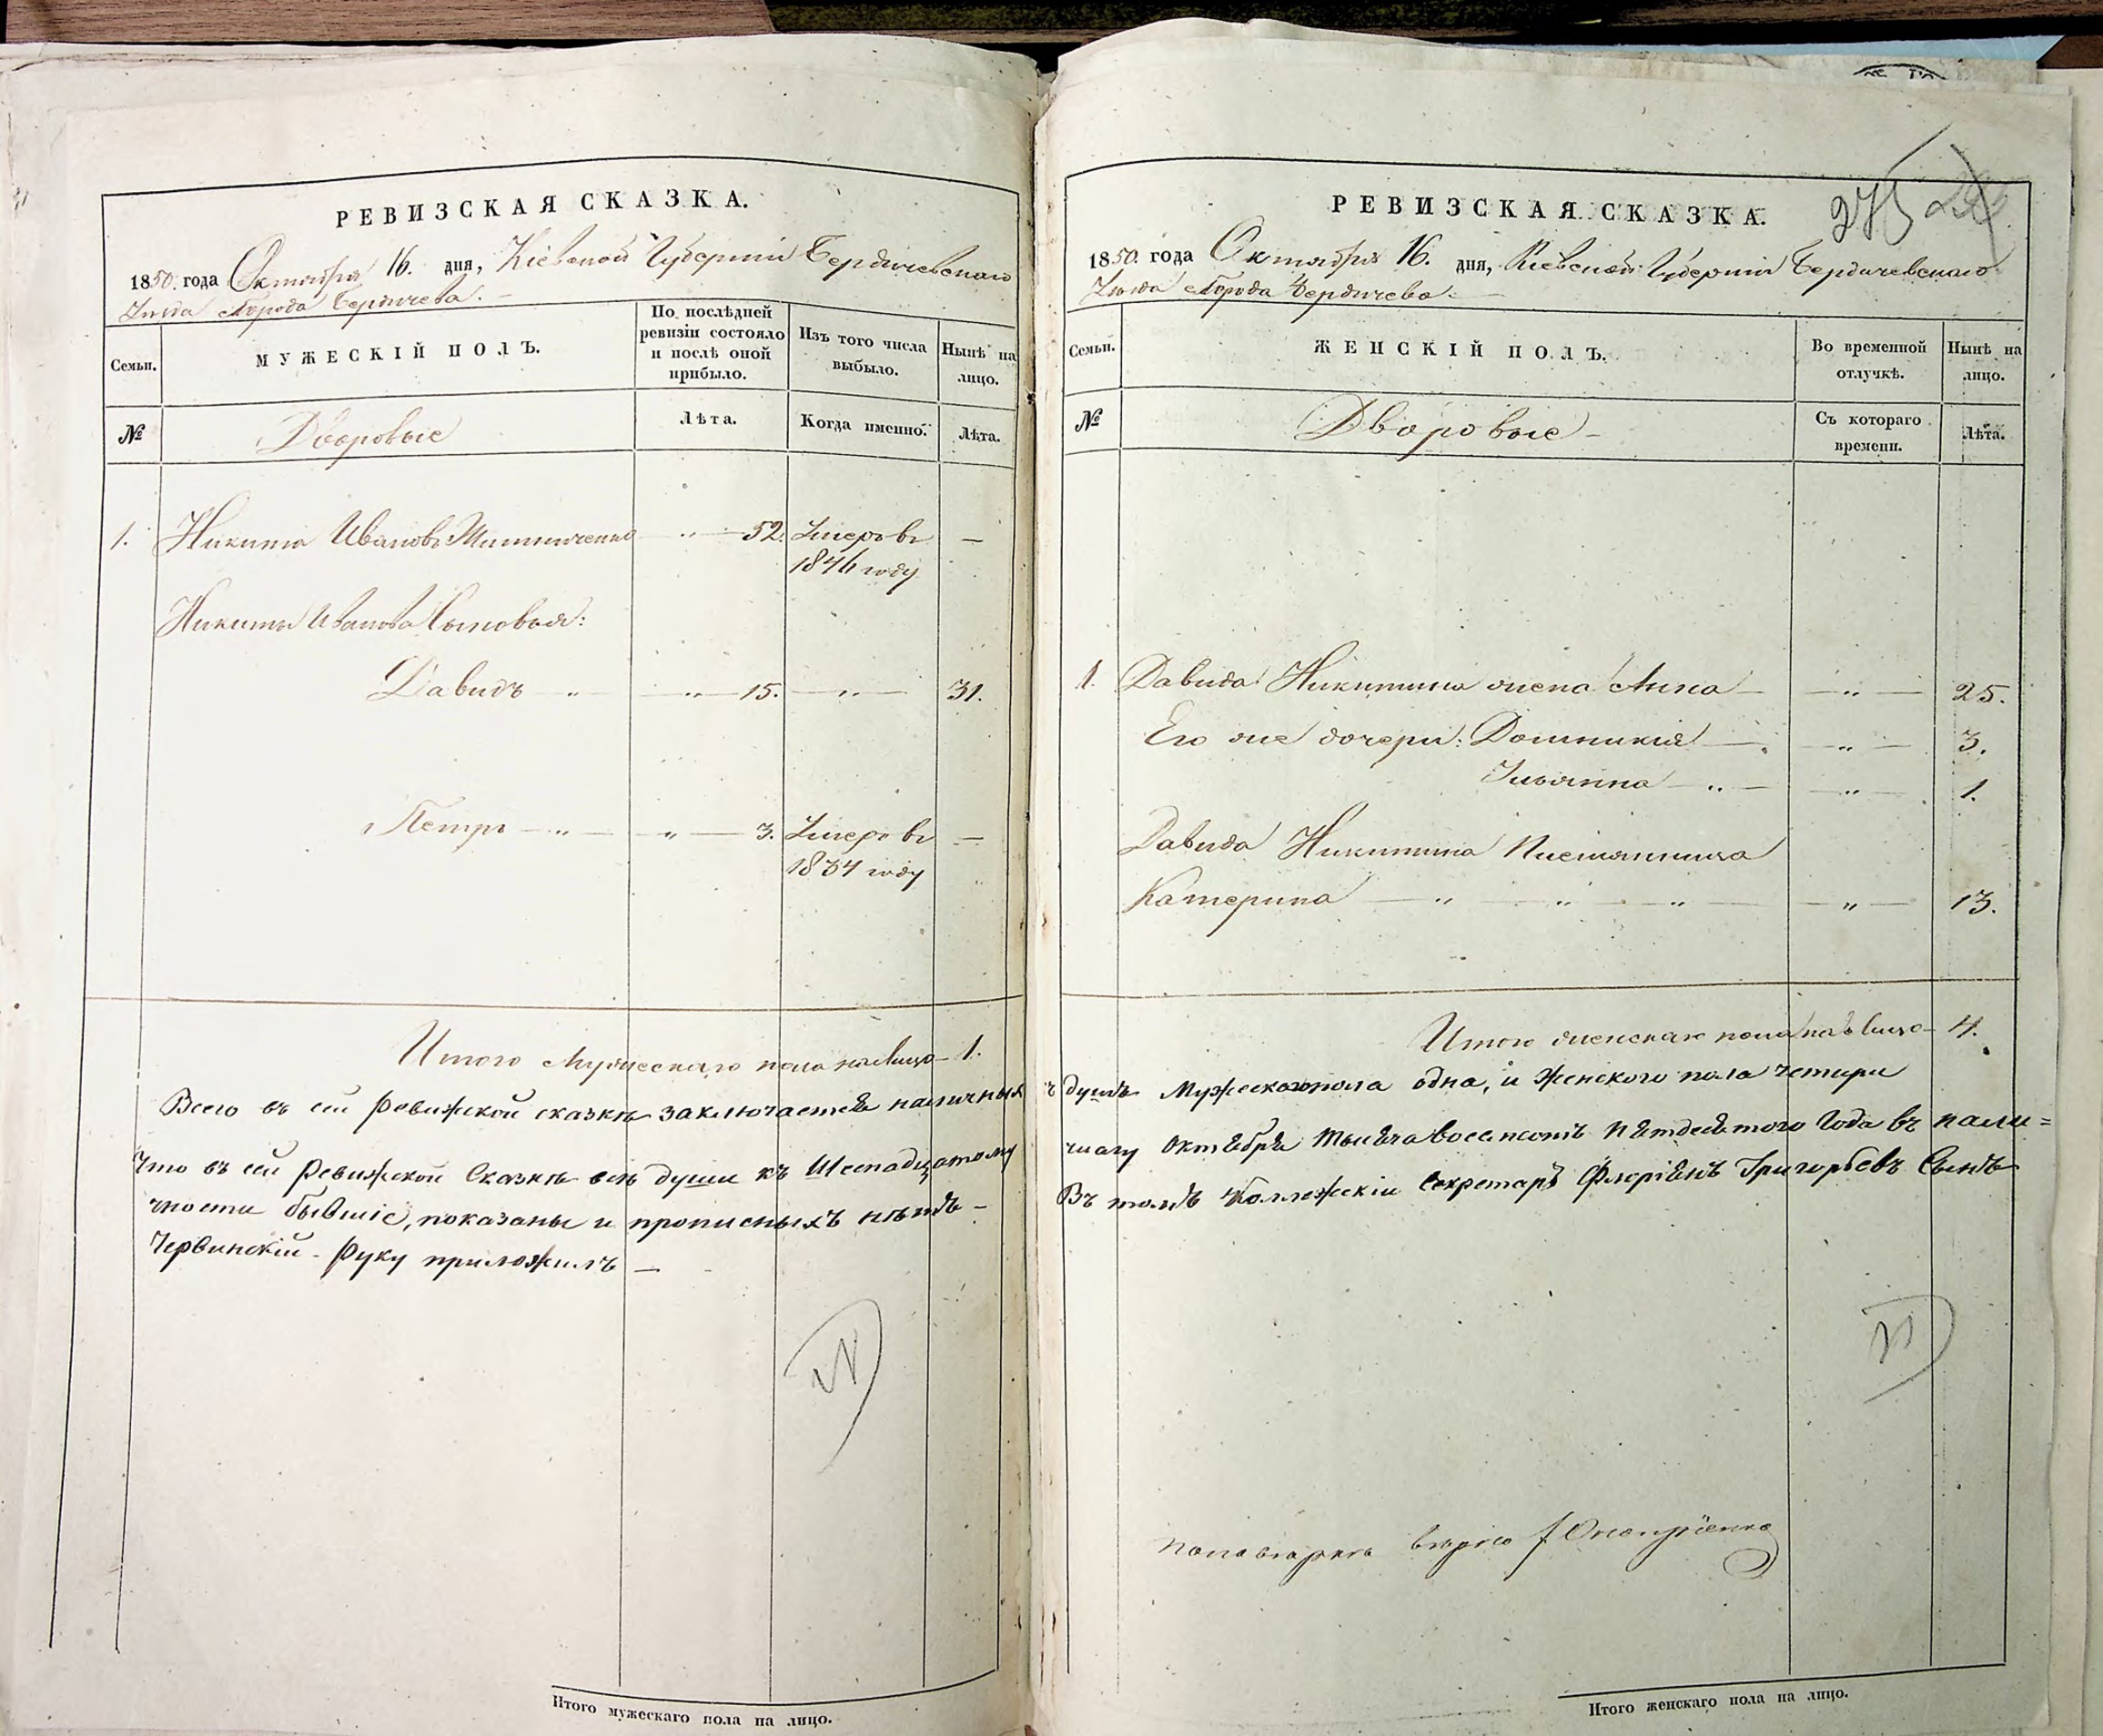 РЕВИЗСКАЯ СКАЗКА.
1850. года Октября 16. дня, Кіевской Губерніи Бердичевскаго
Уезда Города Бердичева.
Семьи.
МУЖЕСКІЙ ПОЛЪ.
По послѣдней ревизіи состояло и послѣ оной прибыло.
Изъ того числа выбыло.
Нынѣ на лицо.
№
Дворовые
Лѣта.
Когда именно.
Лѣта.
1. Никита Ивановъ 52. Умеръ въ —
1846 году
Никиты Иванова Сыновья:
Давидъ 15. 31.
Петръ 3. Умеръ въ —
1834 году
Итого Мужескаго пола на Лицо 1.
Всего въ сей Ревижской сказкѣ заключается наличныхъ
Что въ сей Ревижской Сказкѣ всѣ души къ Шеснадцатому
чности бывшіе, показаны и прописныхъ нѣтъ —
Червинскій Руку приложилъ —
Итого мужескаго пола на лицо.
РЕВИЗСКАЯ СКАЗКА.
275
1850. года Октября 16. дня, Кіевской Губерніи Бердичевскаго
Уезда Города Бердичева.
Семьи.
ЖЕНСКІЙ ПОЛЪ.
Во временной отлучкѣ.
Нынѣ на лицо.
№
Дворовые
Съ котораго времени.
Лѣта.
1. Давида Никитина жена Анна 25.
Его же дочери: Домникія 3.
Ульянна 1.
Давида Никитина Племянница
Катерина 13.
Итого женскаго пола на Лицо 4.
душъ Мужескаго пола одна, и Женского пола четыри
числу Октября Тысяча восемсотъ Пятдесятого Года въ нали=
Въ томъ Коллежскій Секретарь Флоріянъ Григорьевъ Сынъ
Итого женскаго пола на лицо.